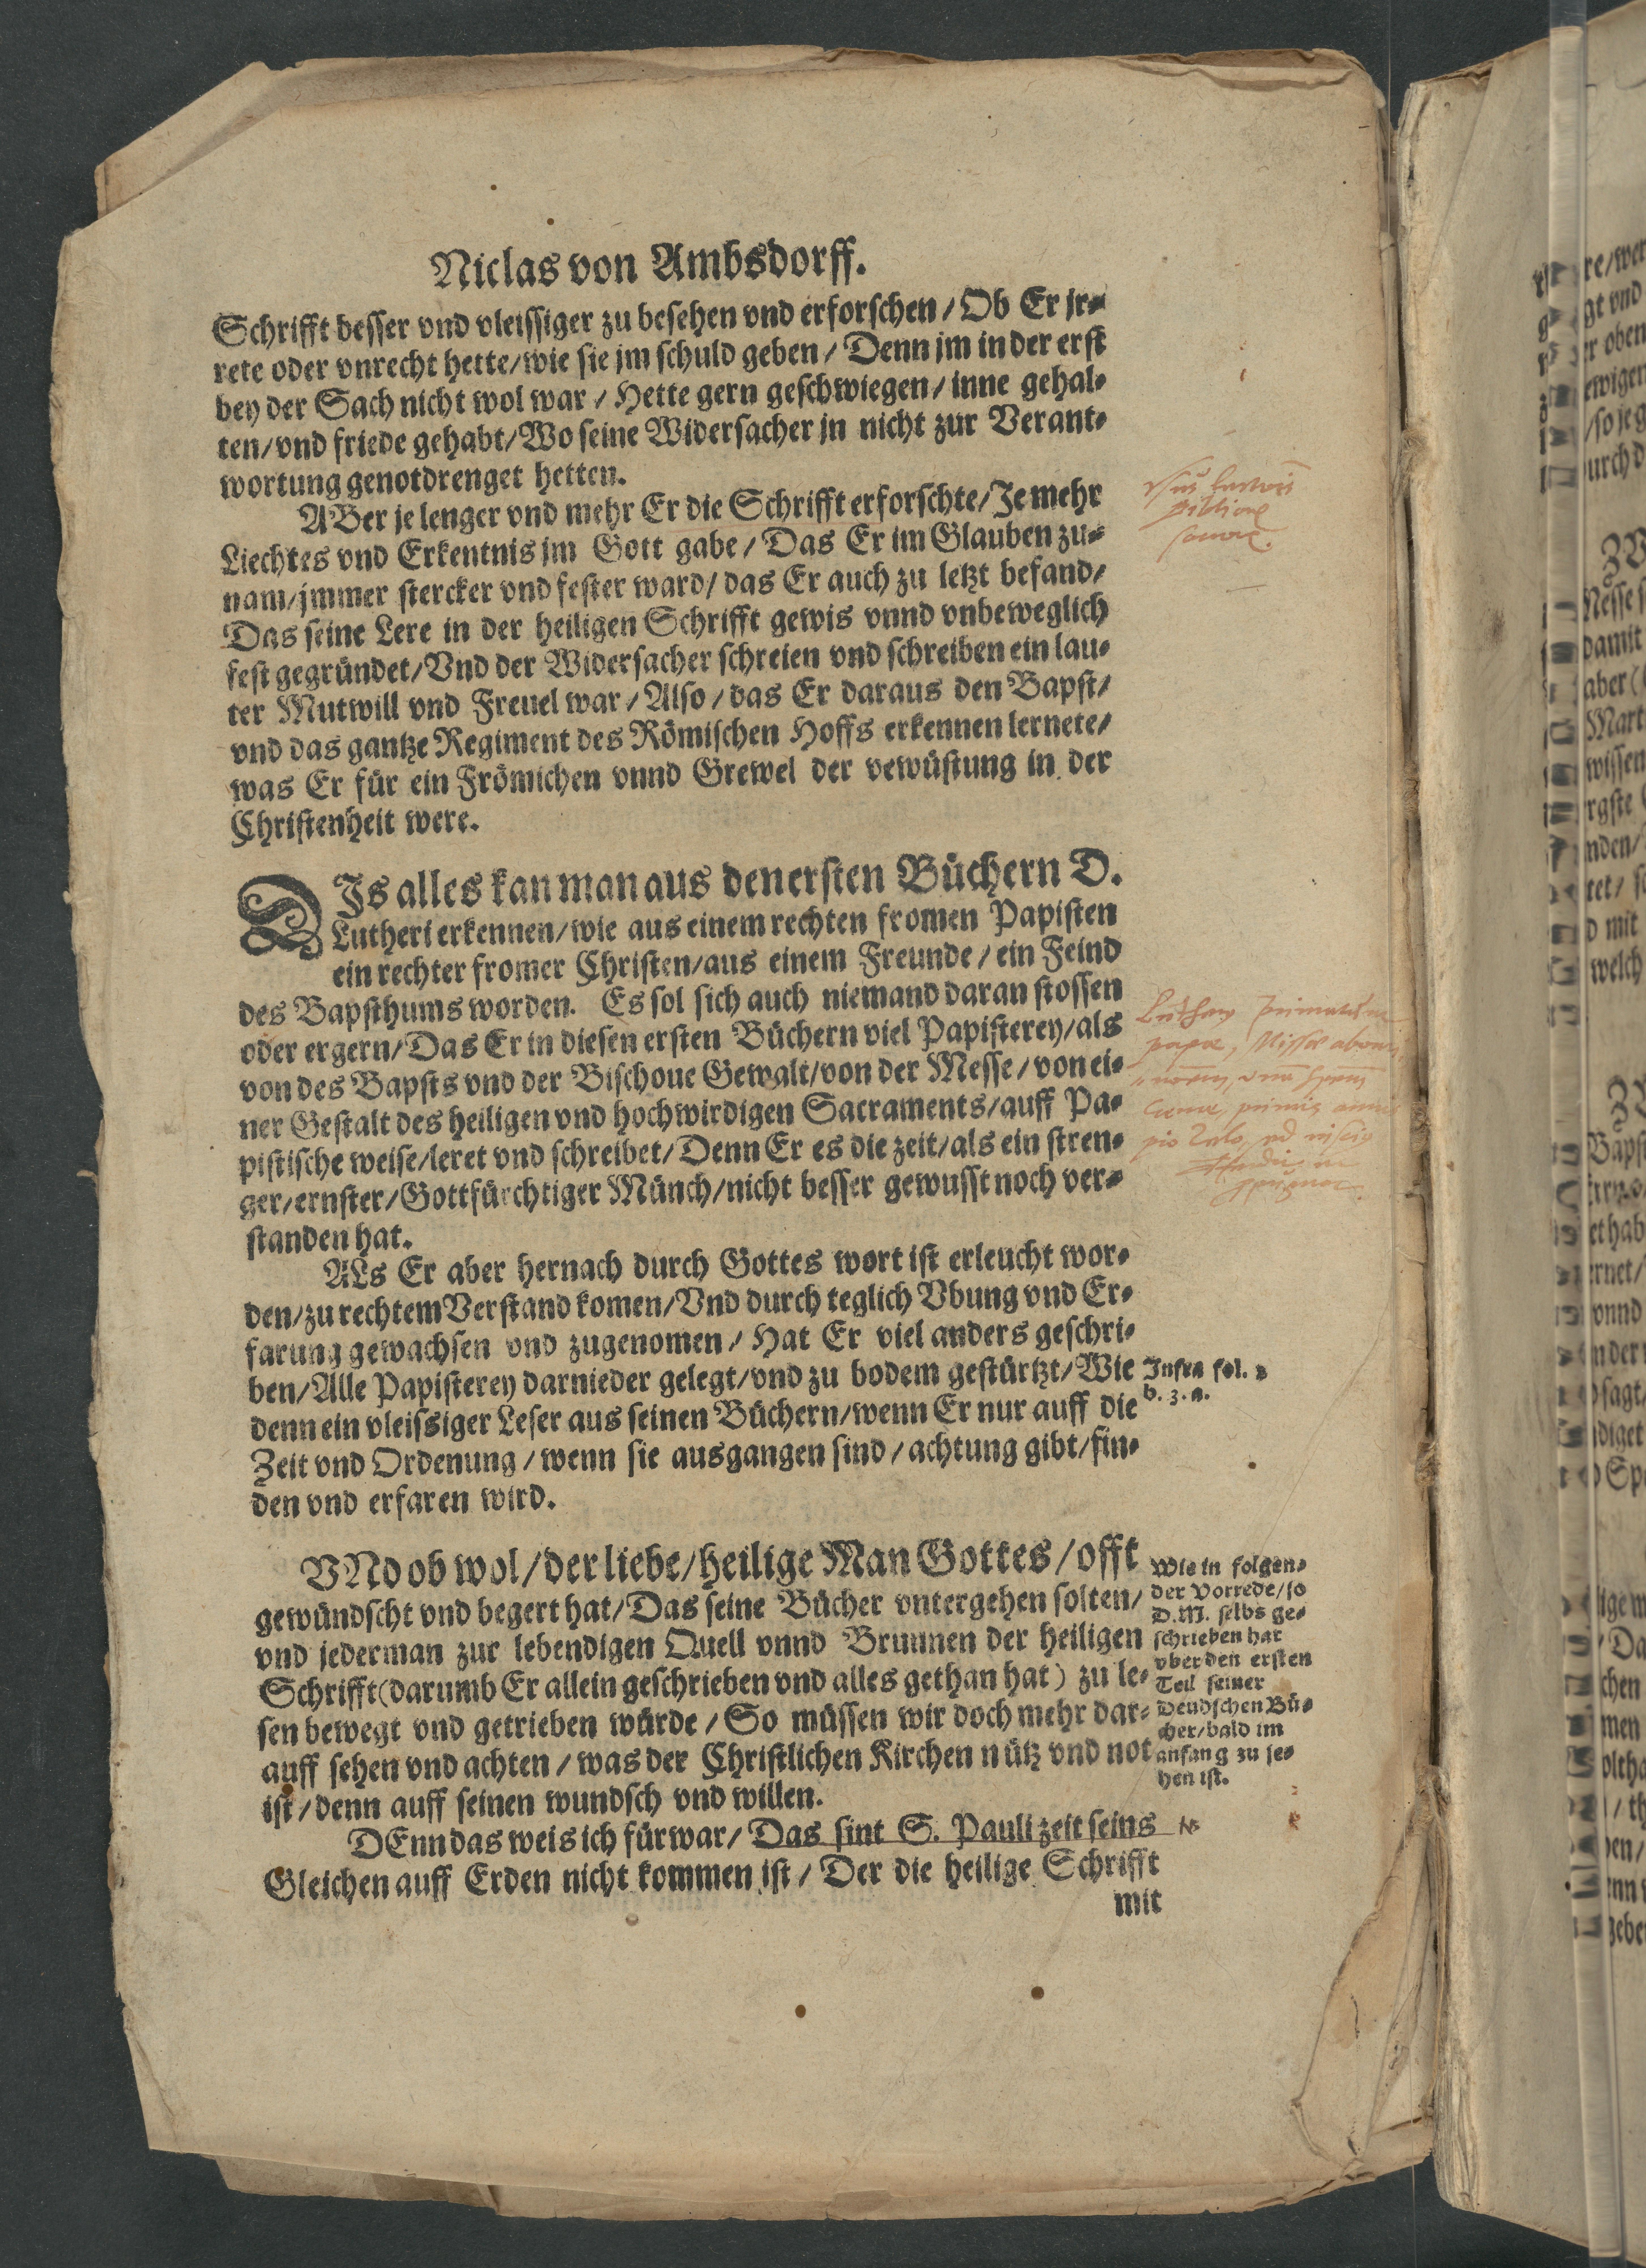 Niclas von Ambsdorff.
Schrifft besser vnd vleissiger zu besehen vnd erforschen / Ob Er jr⸗
rete oder vnrecht hette/wie sie jm schuld geben / Denn jm in der erst
bey der Sach nicht wol war / Hette gern geschwiegen / inne gehal⸗
ten/vnd friede gehabt/Wo seine Widersacher jn nicht zur Verant⸗
wortung genotdrenget hetten.
ABer je lenger vnd mehr Er die Schrifft erforschte/Je mehr
Liechtes vnd Erkentnis jm Gott gabe / Das Er im Glauben zu⸗
nam/jmmer stercker vnd fester ward/ das Er auch zu letzt befand/
Das seine Lere in der heiligen Schrifft gewis vnnd vnbeweglich
fest gegründet/Vnd der Widersacher schreien vnd schreiben ein lau⸗
ter Mutwill vnd Freuel war / Also / das Er daraus den Bapst/
vnd das gantze Regiment des Römischen Hoffs erkennen lernete/
was Er für ein Frömichen vnnd Grewel der vewüstung in der
Christenheit were.
DJs alles kan man aus den ersten Büchern D.
Lutheri erkennen/wie aus einem rechten fromen Papisten
ein rechter fromer Christen/aus einem Freunde / ein Feind
des Bapsthums worden. Es sol sich auch niemand daran stossen
oder ergern/Das Er in diesen ersten Büchern viel Papisterey/als
von des Bapsts vnd der Bischoue Gewalt/von der Messe / von ei⸗
ner Gestalt des heiligen vnd hochwirdigen Sacraments/auff Pa⸗
pistische weise/leret vnd schreibet/Denn Er es die zeit/als ein stren⸗
ger/ernster/Gottfürchtiger Münch/nicht besser gewusst noch ver⸗
standen hat.
ALs Er aber hernach durch Gottes wort ist erleucht wor⸗
den/zu rechtem Verstand komen/Vnd durch teglich Vbung vnd Er⸗
farung gewachsen vnd zugenomen / Hat Er viel anders geschri⸗
ben/Alle Papisterey darnieder gelegt/vnd zu bodem gestürtzt/Wie
denn ein vleissiger Leser aus seinen Büchern/wenn Er nur auff die
Zeit vnd Ordenung / wenn sie ausgangen sind / achtung gibt/fin⸗
den vnd erfaren wird.
Infra fol. 2
b. 3. a.
VNd ob wol/der liebe/heilige Man Gottes/offt
gewündscht vnd begert hat/Das seine Bücher vntergehen solten/
vnd jederman zur lebendigen Quell vnnd Brunnen der heiligen
Schrifft(darumb Er allein geschrieben vnd alles gethan hat) zu le⸗
sen bewegt vnd getrieben würde / So müssen wir doch mehr dar⸗
auff sehen vnd achten / was der Christlichen Kirchen nütz vnd not
ist / denn auff seinen wundsch vnd willen.
Wie in folgen⸗
der Vorrede/so
D.M. selbs ge⸗
schrieben hat
vber den ersten
Teil seiner
Deudschen Bü⸗
cher/bald im
anfang zu se⸗
hen ist.
DEnn das weis ich fürwar / Das sint S. Pauli zeit seins
Gleichen auff Erden nicht kommen ist / Der die heilige Schrifft
mit